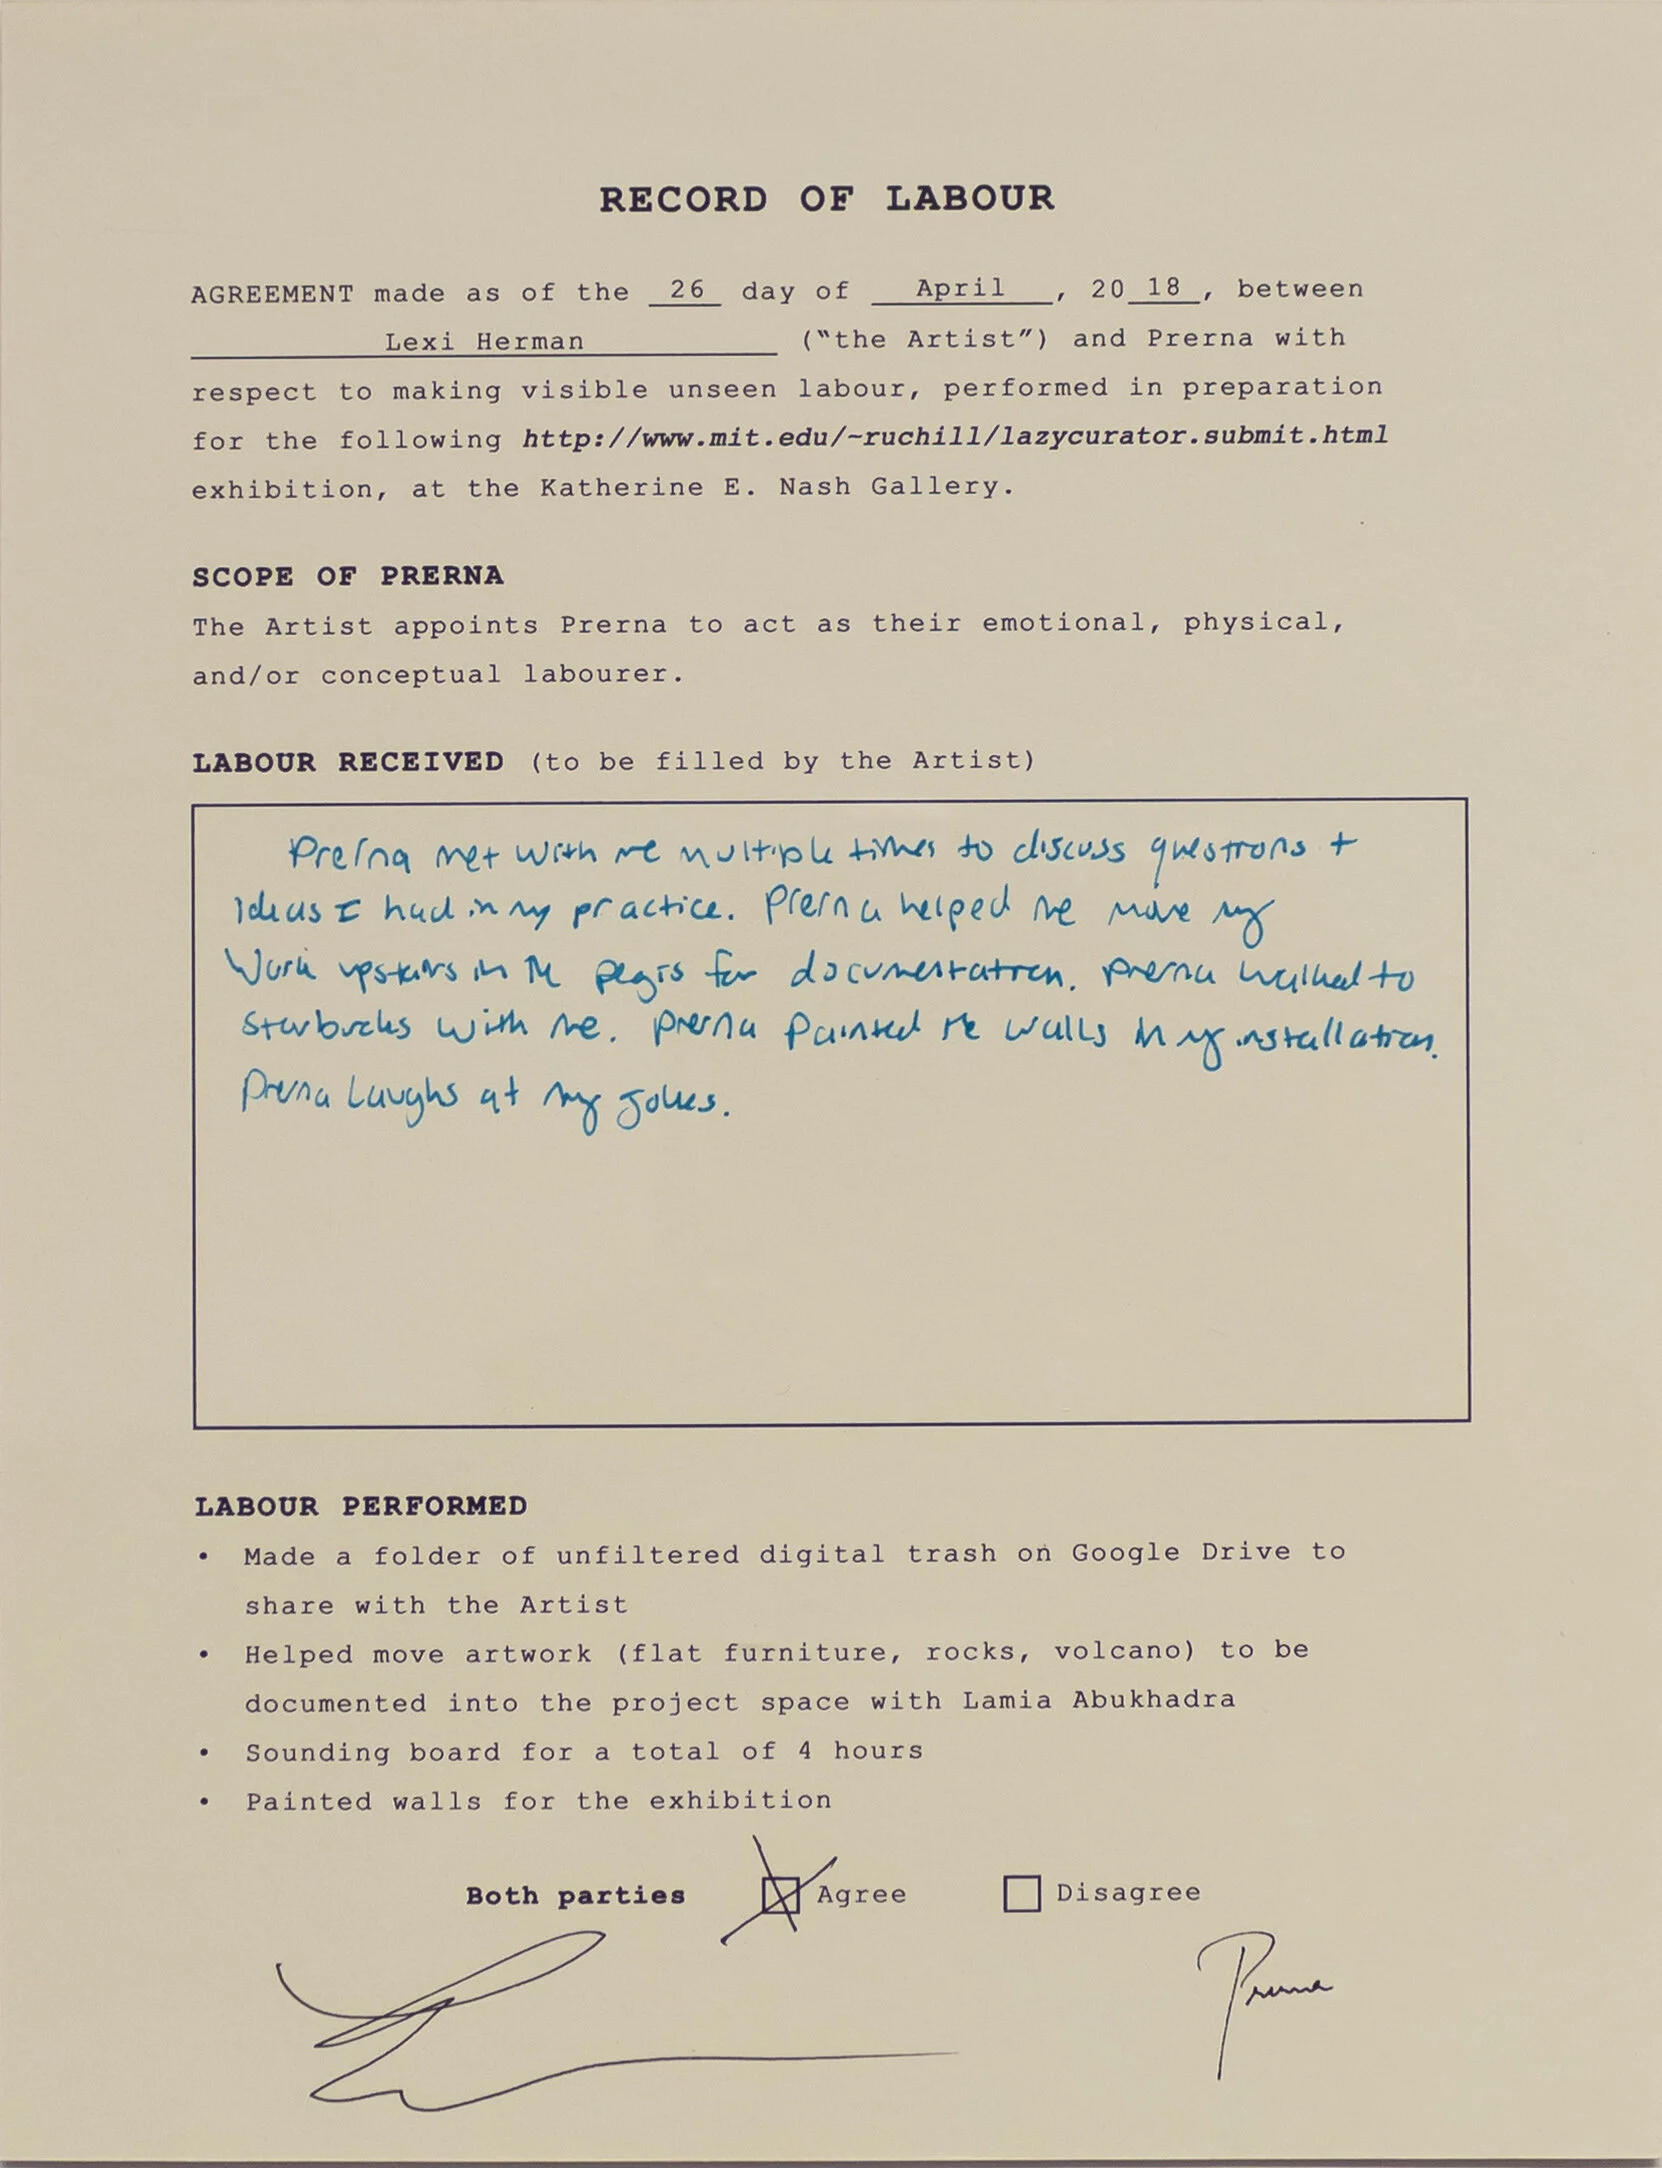 RECORD OF LABOUR
AGREEMENT made as of the 26 day of April, 20 18, between
Lexi Herman (“the Artist”) and Prerna with
respect to making visible unseen labour, performed in preparation
for the following http://www.mit.edu/~ruchill/lazycurator.submit.html
exhibition, at the Katherine E. Nash Gallery.
SCOPE OF PRERNA
The Artist appoints Prerna to act as their emotional, physical,
and/or conceptual labourer.
LABOUR RECEIVED (to be filled by the Artist)
Prerna met with me multiple times to discuss questions +
Ideas I had in my practice. Prerna helped me move my
Work upstairs in the Regis for documentation. Prerna walked to
Starbucks with me. Prerna Painted the walls in my installation.
Prerna Laughs at my Jokes.
LABOUR PERFORMED
• Made a folder of unfiltered digital trash on Google Drive to
share with the Artist
• Helped move artwork (flat furniture, rocks, volcano) to be
documented into the project space with Lamia Abukhadra
• Sounding board for a total of 4 hours
• Painted walls for the exhibition
Both parties Agree Disagree
Prerna